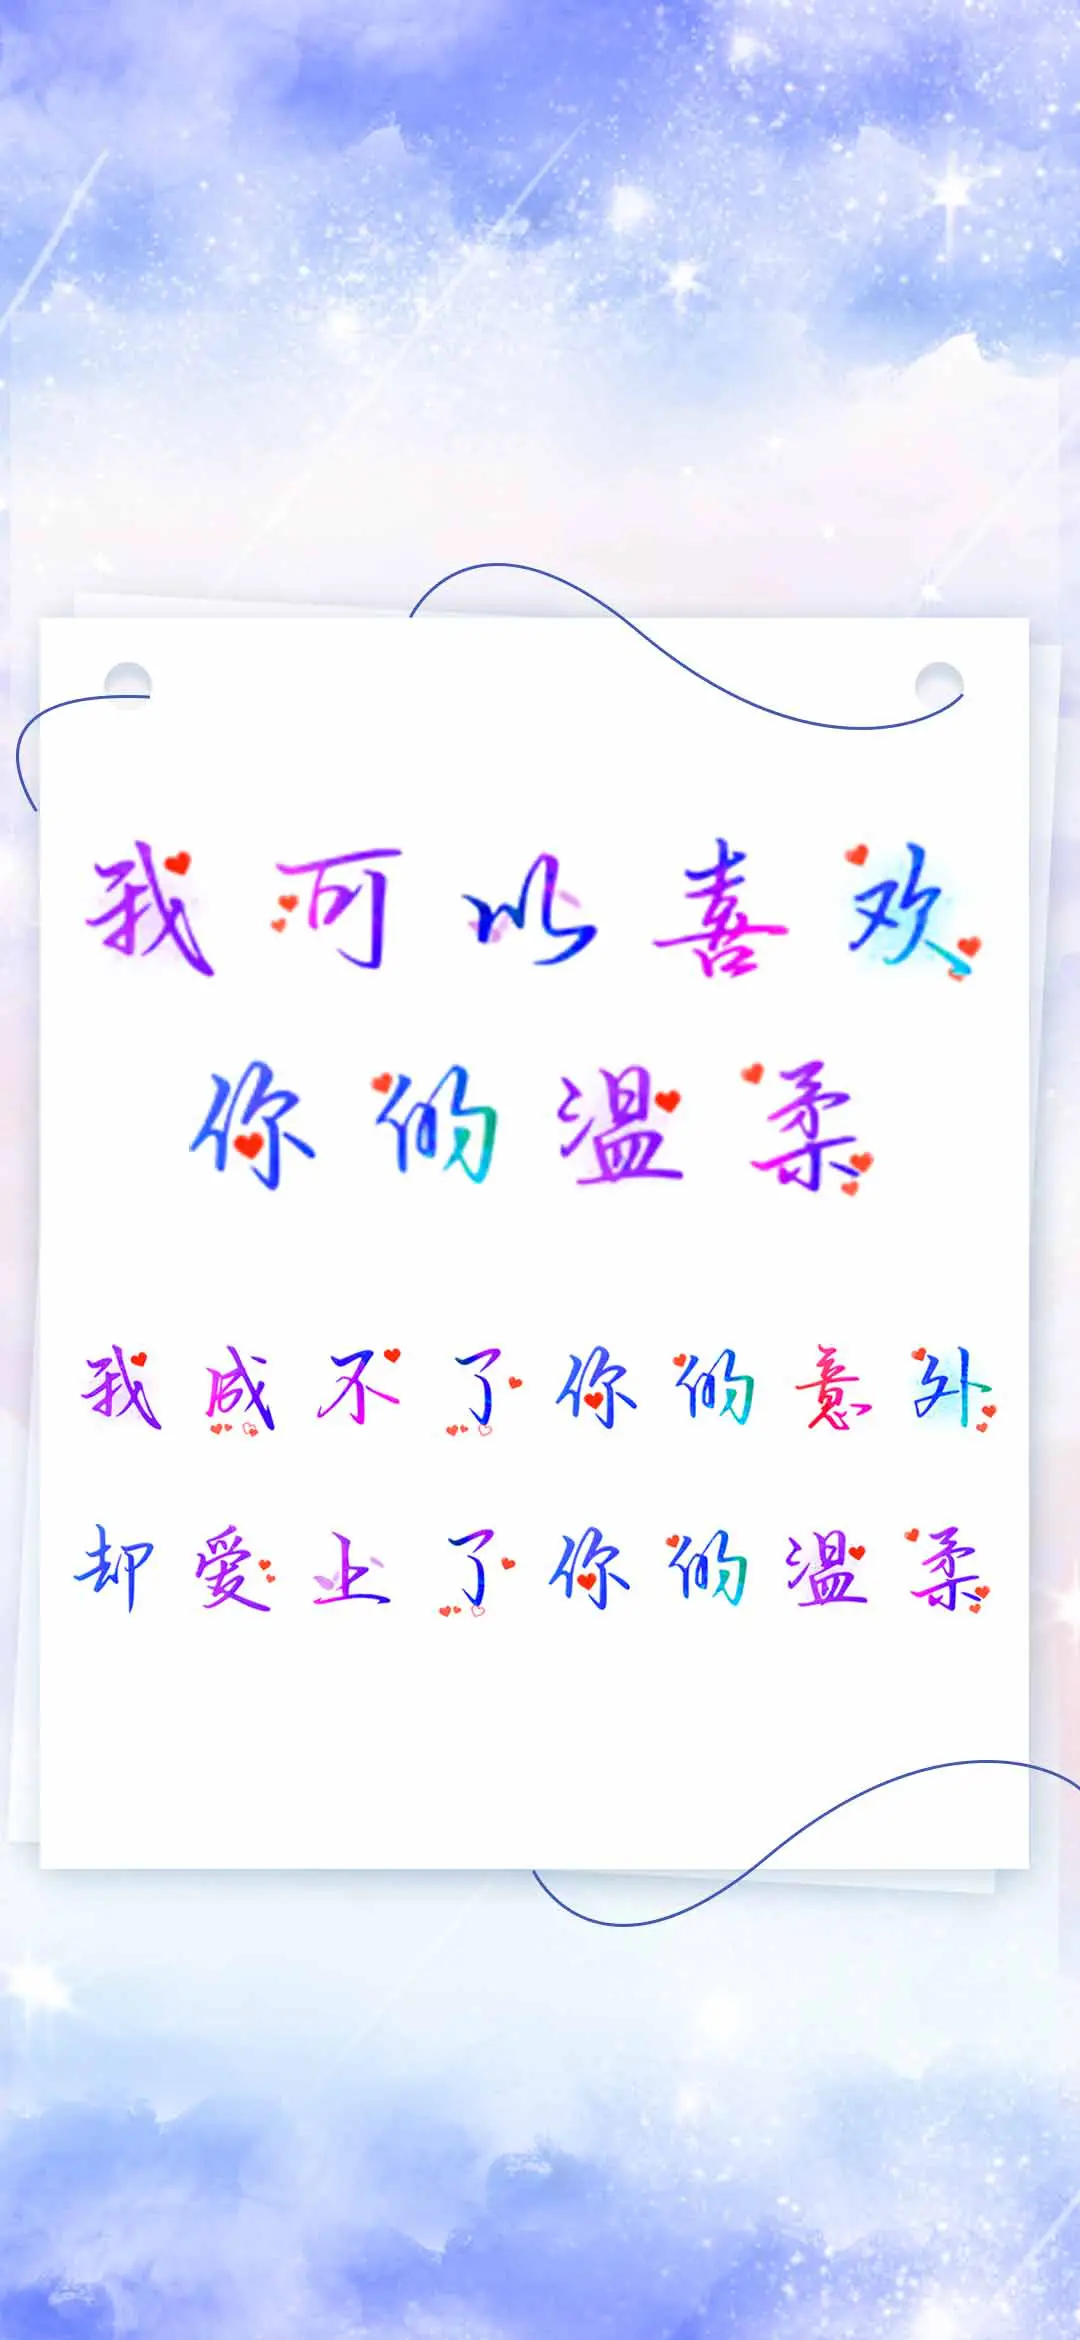 我可以喜欢
你的温柔
我成不了你的意外
却爱上了你的温柔